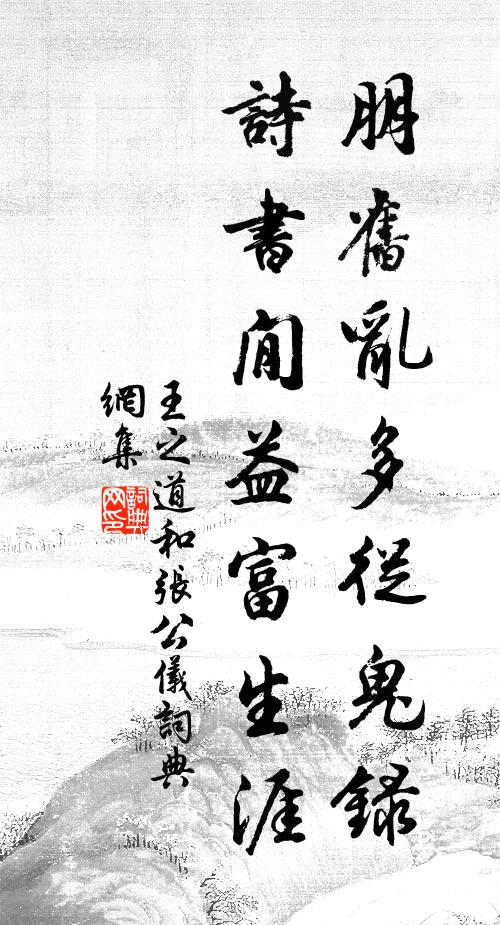 朋舊亂多從鬼錄
詩書閒益富生涯
王之道和張公儀詞典
網集
詞典網印